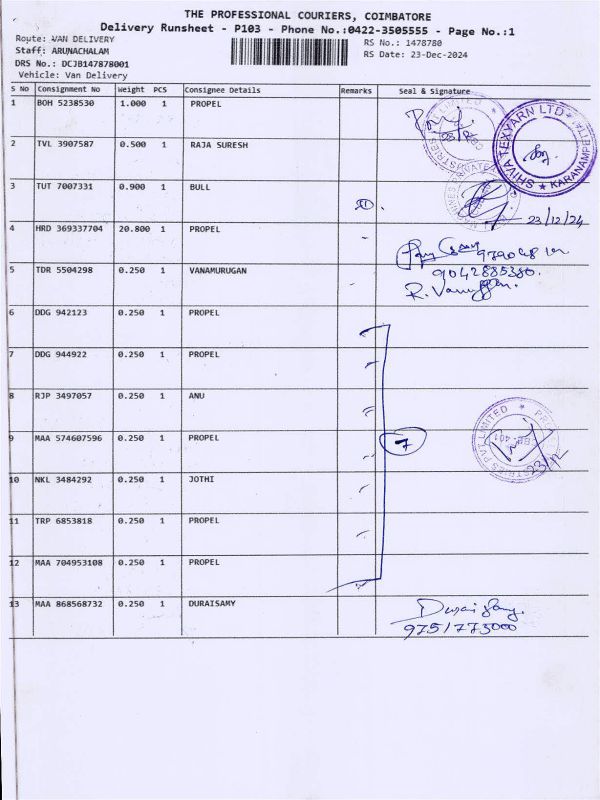 THE PROFESSIONAL COURIERS, COIMBATORE
Delivery Runsheet - P103 - Phone No.:0422-3505555 - Page No.:1
Route: VAN DELIVERY
RS No.: 1478780
Staff: ARUNACHALAM
RS Date: 23-Dec-2024
DRS No.: DCJB147878001
Vehicle: Van Delivery
S No Consignment No Weight PCS Consignee Details Remarks Seal & Signature
1 BOH 5238530 1.000 1 PROPEL
SHIVA TEXYARN LTD KARANAMPET
2 TVL 3907587 0.500 1 RAJA SURESH
3 TUT 7007331 0.900 1 BULL
23/12/24
4 HRD 369337704 20.800 1 PROPEL
5 TDR 5504298 0.250 1 VANAMURUGAN
9042885380.
6 DDG 942123 0.250 1 PROPEL
7 DDG 944922 0.250 1 PROPEL
8 RJP 3497057 0.250 1 ANU
9 MAA 574607596 0.250 1 PROPEL
7
23/12
10 NKL 3484292 0.250 1 JOTHI
11 TRP 6853818 0.250 1 PROPEL
12 MAA 704953108 0.250 1 PROPEL
13 MAA 868568732 0.250 1 DURAISAMY
Duraisamy.
9751773000